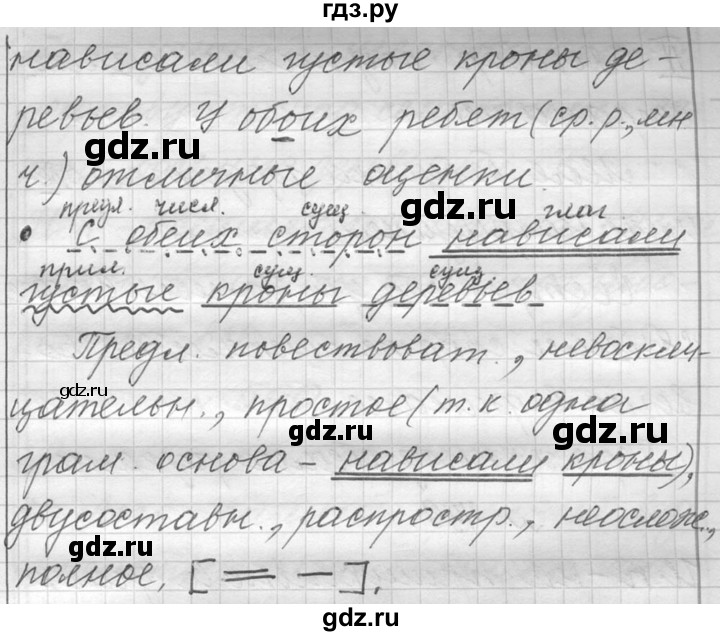 гдз.ру
нависали густые кроны де-
ревьев. У обоих ребят (ср. р., мн
ч.) отличные оценки
предл. числ. сущ. глаг.
• С обеих сторон нависали
прил. сущ. сущ.
густые кроны деревьев
Предл. повествоват., невоскли-
цательн., простое (т. к. одна
грам. основа - нависали кроны),
двусоставн., распростр., неослож.,
полное, [═ —].
gdz.ru
gdz.ru
gdz.ru
gdz.ru
gdz.ru
gdz.ru
gdz.ru
gdz.ru
gdz.ru